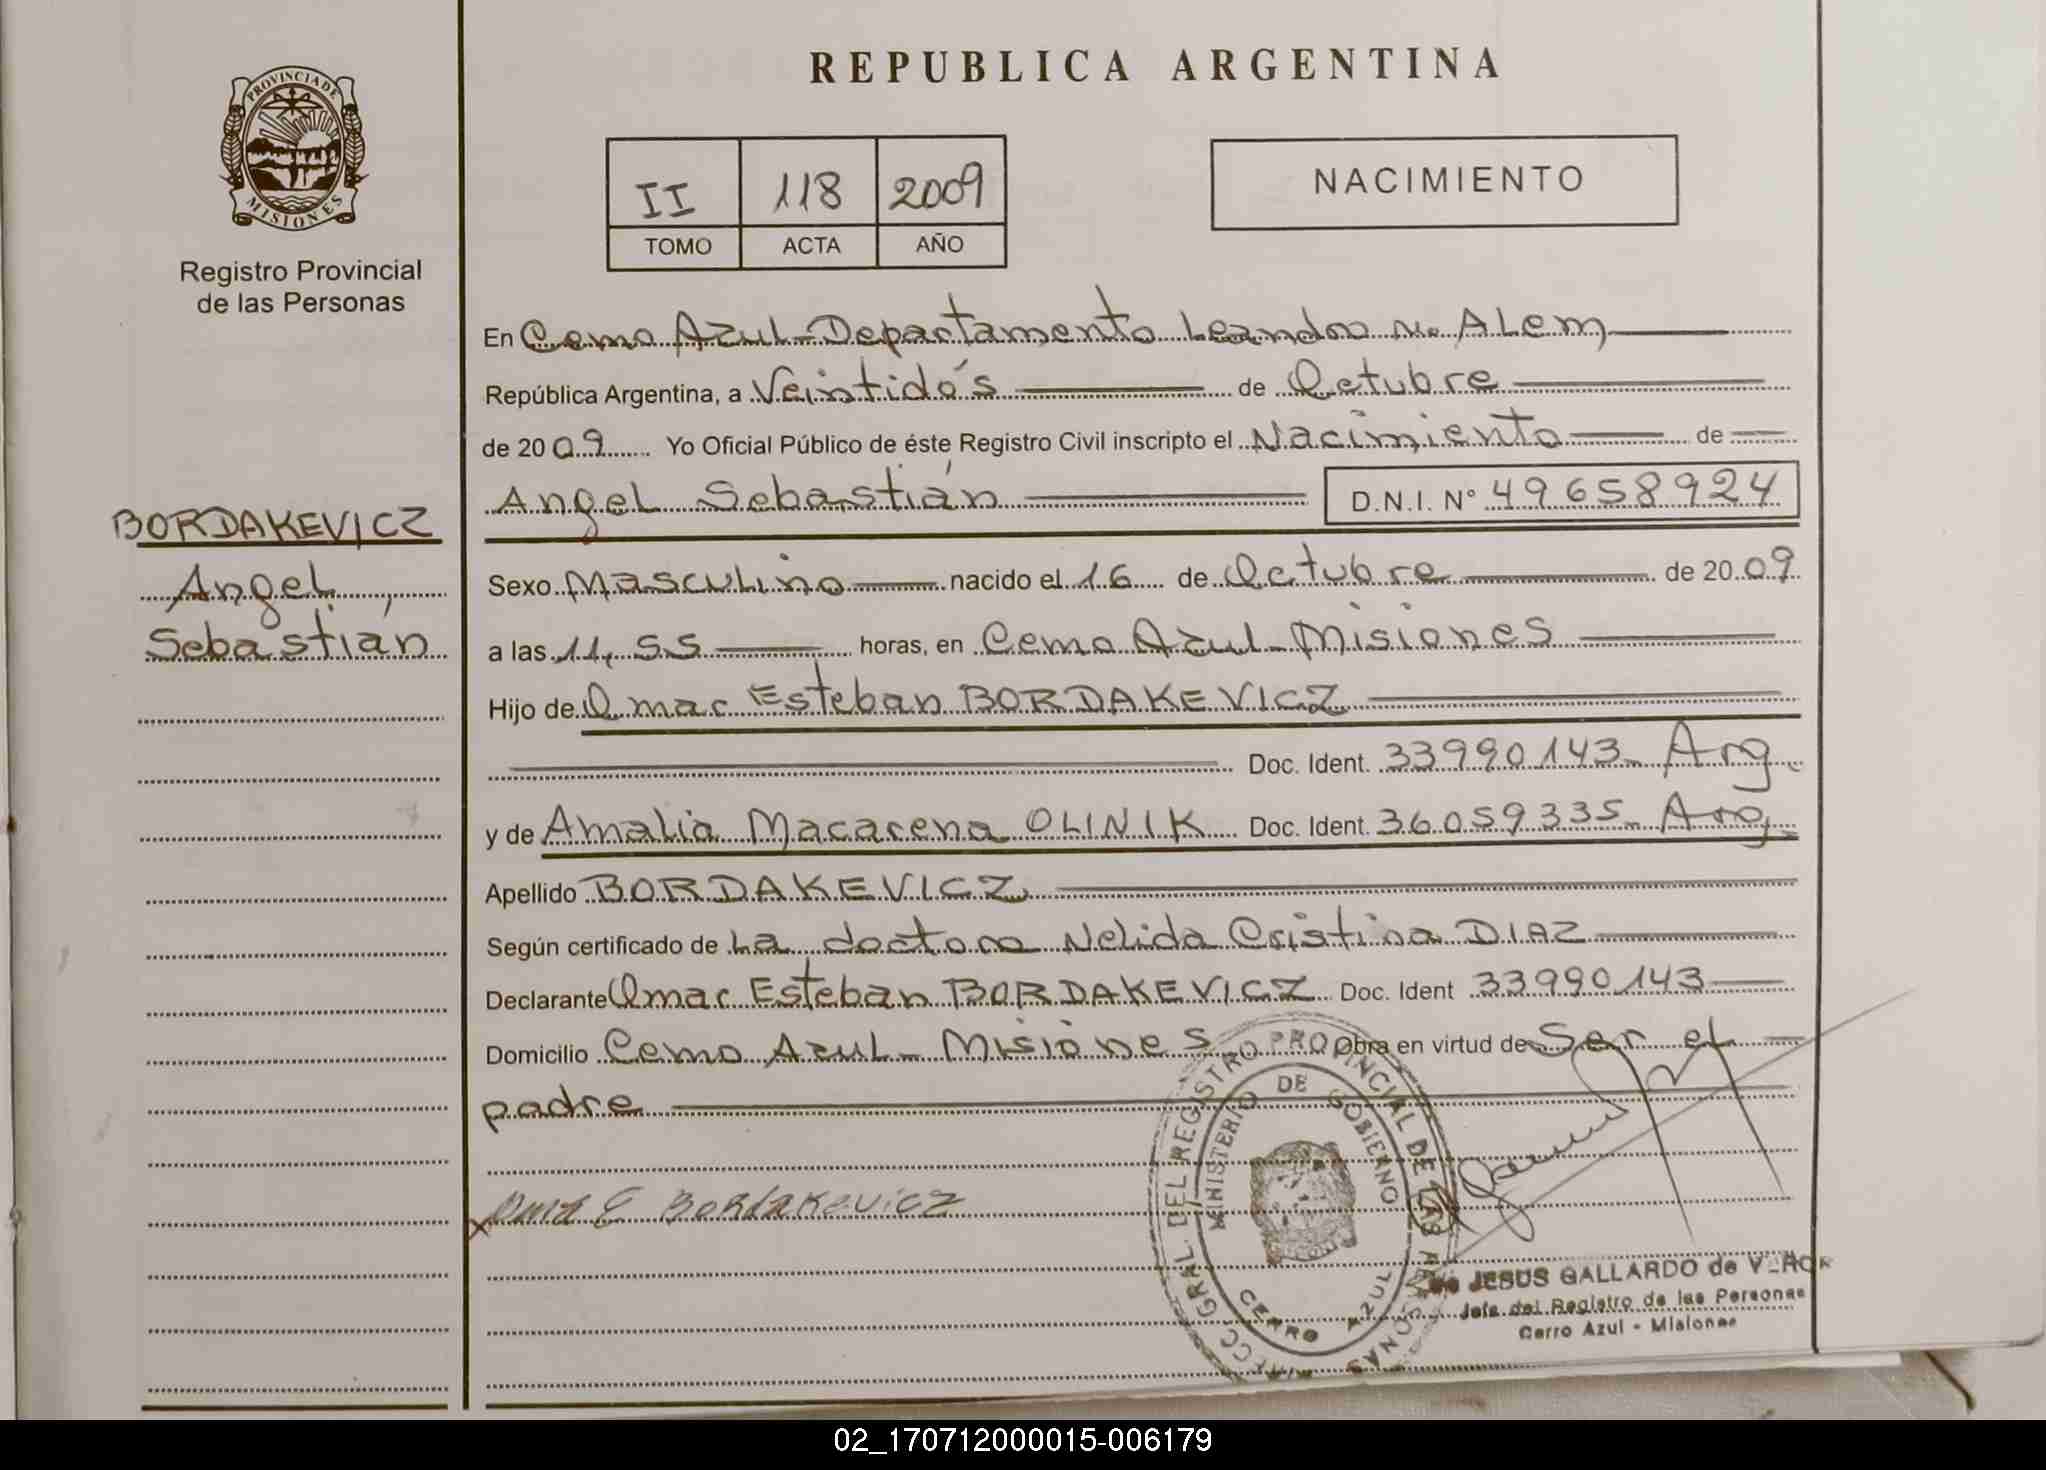 REPUBLICA ARGENTINA
PROVINCIA DE
MISIONES
Registro Provincial
de las Personas
II 118 2009
TOMO ACTA AÑO
NACIMIENTO
En Cerro Azul - Departamento Leandro N. ALem
República Argentina, a Veintidós de Octubre
de 2009 Yo Oficial Público de éste Registro Civil inscripto el Nacimiento de
Angel Sebastián D.N.I. Nº 49658924
BORDAKEVICZ
Angel
Sebastián
Sexo Masculino nacido el 16 de Octubre de 2009
a las 11,55 horas, en Cerro Azul - Misiones
Hijo de Omar Esteban BORDAKEVICZ
Doc. Ident. 33990143 - Arg.
y de Amalia Macarena OLINIK Doc. Ident. 36059335 - Arg.
Apellido BORDAKEVICZ
Según certificado de La doctora Nelida Cristina DIAZ
Declarante Omar Esteban BORDAKEVICZ Doc. Ident 33990143
Domicilio Cerro Azul - Misiones Obra en virtud de Ser el
padre
x Omar E Bordakevicz
GRAL. DEL REGISTRO PROVINCIAL DE LAS PERSONAS
MINISTERIO DE GOBIERNO
CERRO AZUL
JESUS GALLARDO de
Jefe del Registro de las Personas
Cerro Azul - Misiones
02_170712000015-006179